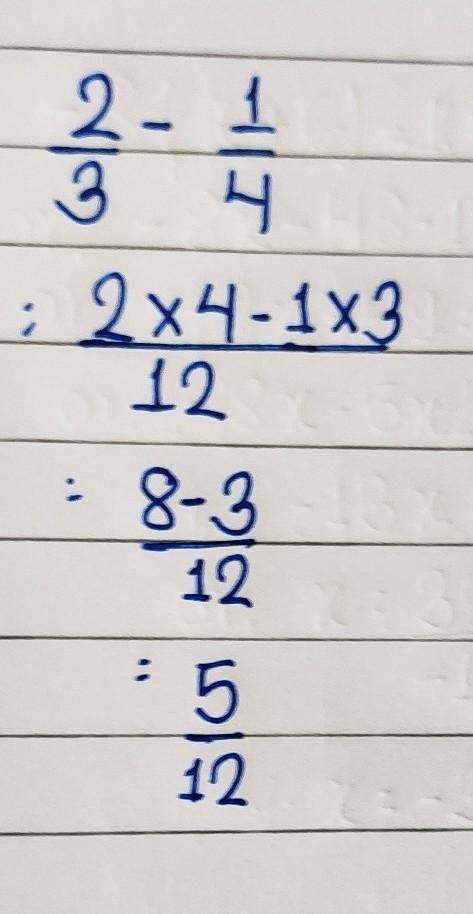 2/3 - 1/4
: 2×4-1×3/12
: 8-3/12
: 5/12